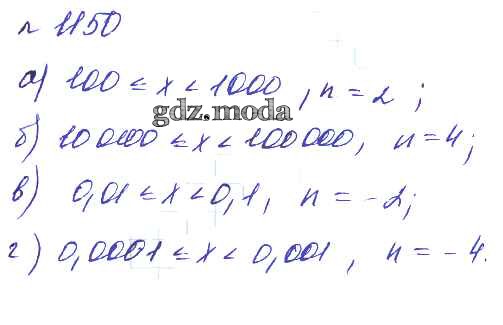 № 1150
а) 100 ≤ x < 1000, n = 2;
gdz.moda
б) 10000 ≤ x < 100000, n = 4;
в) 0,01 ≤ x < 0,1, n = -2;
г) 0,0001 ≤ x < 0,001, n = -4.